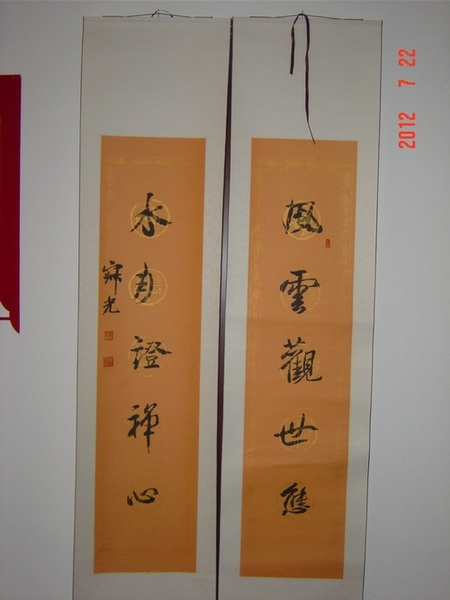 風雲觀世態
水月證禪心
寂光
2012 7 22